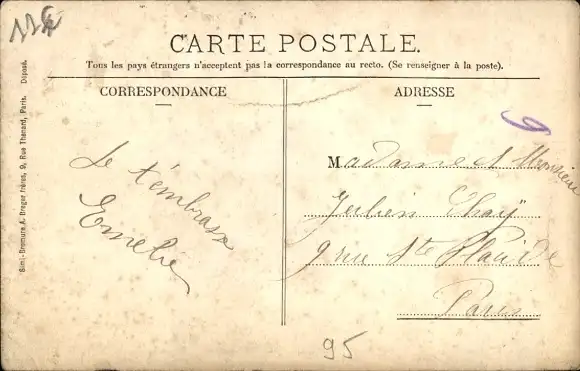 112
CARTE POSTALE.
Tous les pays étrangers n'acceptent pas la correspondance au recto. (Se renseigner à la poste).
CORRESPONDANCE
ADRESSE
Je t'embrasse
Emelie
Madame & Monsieur
Julien Chaÿ
9 rue Ste Placide
Paris
95
Simi-Bromure A. Breger frères, 9, Rue Thenard, Paris. Déposé.